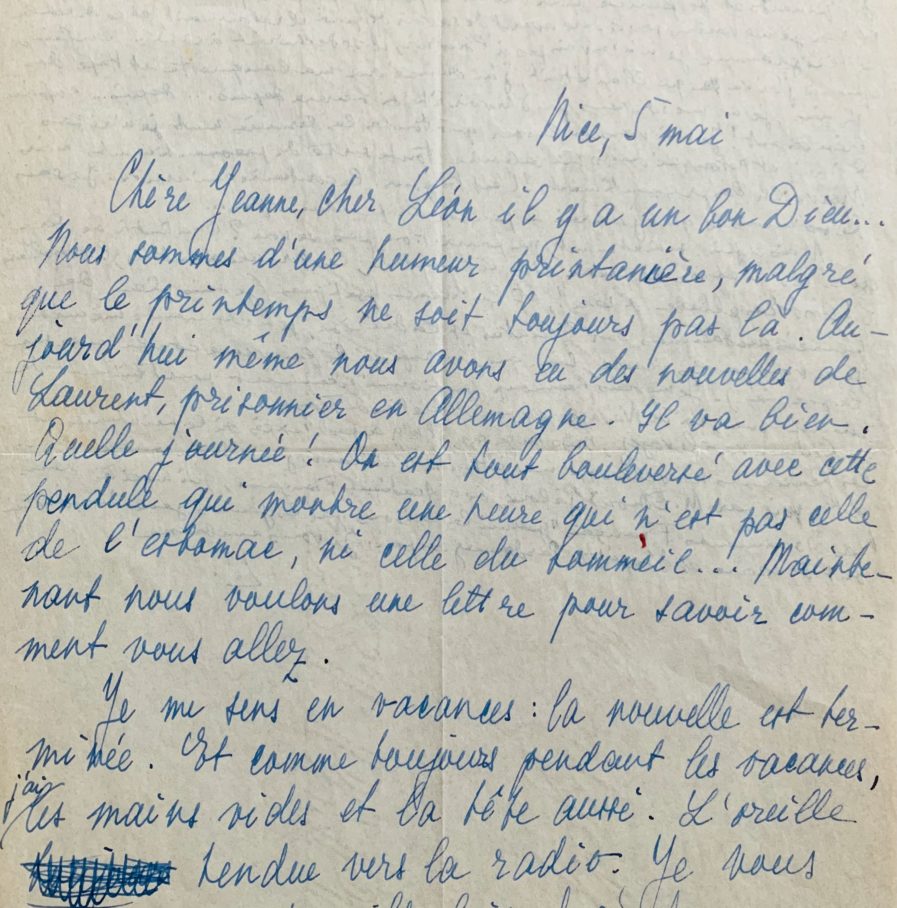 Nice, 5 mai
Chère Jeanne, cher Léon il y a un bon Dieu...
Nous sommes d'une humeur printanière, malgré
que le printemps ne soit toujours pas là. Au-
jourd'hui même nous avons eu des nouvelles de
Laurent, prisonnier en Allemagne. Il va bien.
Quelle journée! On est tout bouleversé avec cette
pendule qui montre une heure qui n'est pas celle
de l'estomac, ni celle du sommeil... Mainte-
nant nous voulons une lettre pour savoir com-
ment vous allez.
Je me sens en vacances : la nouvelle est ter-
minée. Et comme toujours pendant les vacances,
j'ai les mains vides et la tête aussi. L'oreille
tendue vers la radio. Je vous